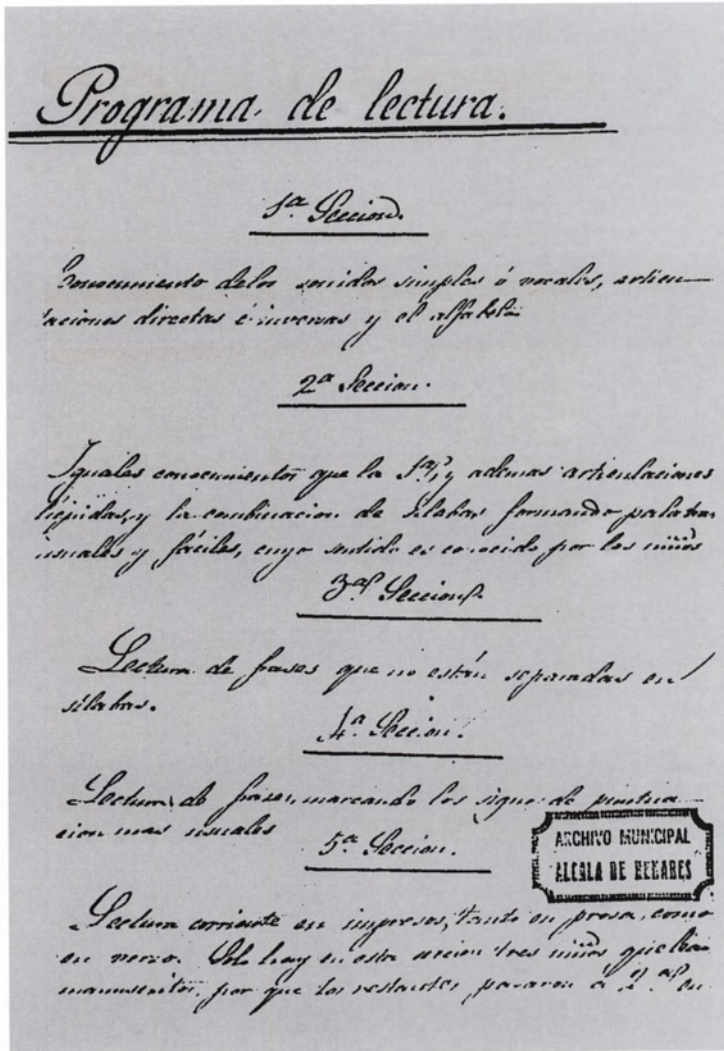 Programa de lectura.
1ª Seccion.
Conocimiento delos sonidos simples ó vocales, articu-
laciones directas é inversas y el alfabeto
2ª Seccion.
Iguales conocimientos que la 1ª, y ademas articulaciones
y la combinacion de silabas formando palabras
usuales y fáciles, cuyo sentido es conocido por los niños
3ª Seccion.
Lectura de frases que no están separadas en
silabas.
4ª Seccion.
Lectura de frases, marcando los signos de puntua-
cion mas usuales
5ª Seccion.
ARCHIVO MUNICIPAL
ALCALA DE HENARES
Lectura corriente en impresos, tanto en prosa, como
en verso. Solo hay en esta seccion tres niños que lean
manuscritos, por que los restantes, pasaron á 2ª en